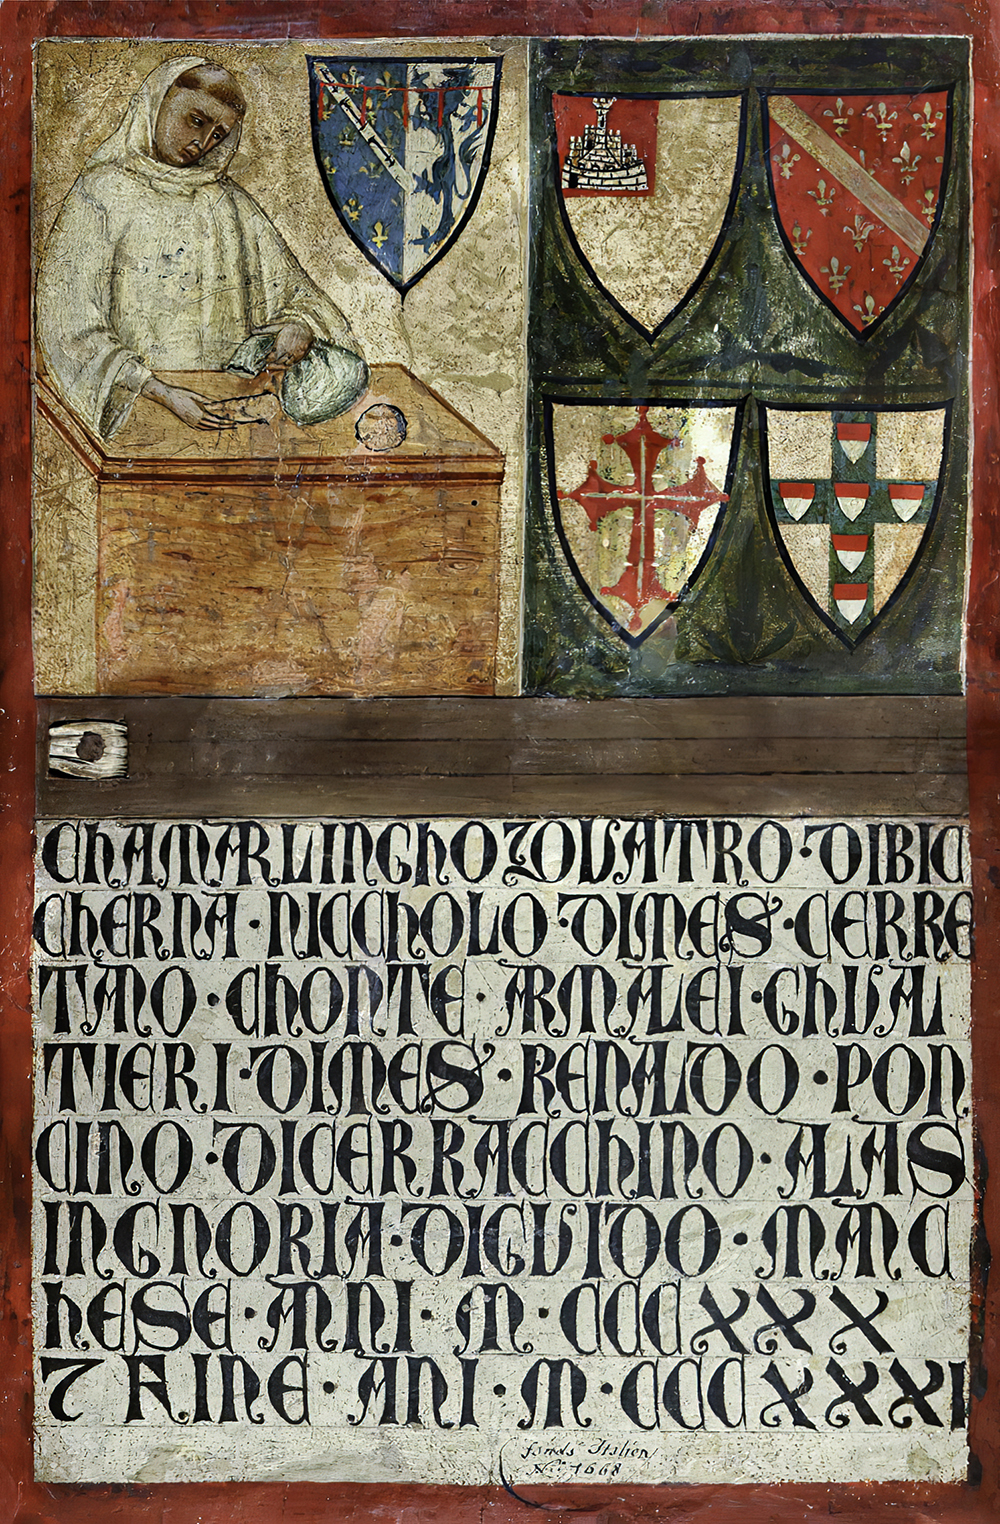 CHAMARLINGHO ⁊ QUATRO · DI BIC
CHERNA · NICCHOLO · DIMES · CERRE
TANO · CHONTE · ARMALEI · GHUAL
TIERI · DIMES · RENALDO · PON
CINO · DICERRACCHINO · ALAS
INGNORIA · DIGUIDO · MARC
HESE · ANI · M · CCCXXX
⁊ FINE · ANI · M · CCCXXXI
fonds Italien
N.o 1668